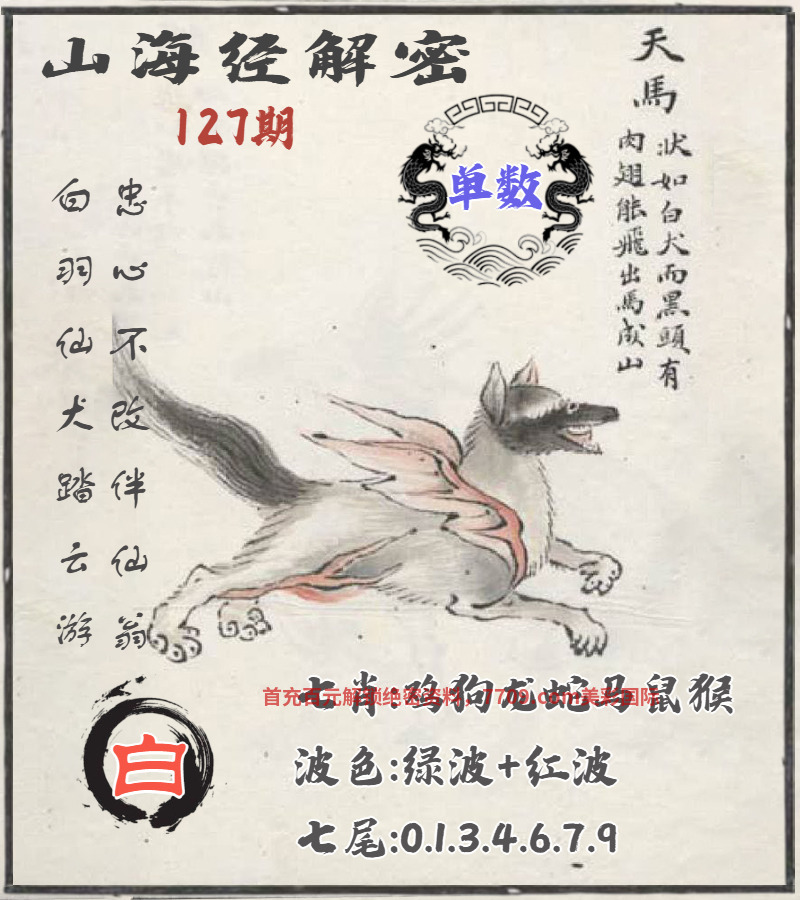 山海经解密
127期
单数
天馬
状如白犬而黑頭有
肉翅能飛出馬成山
忠心不改伴仙翁
白羽仙犬踏云游
七肖:鸡狗龙蛇马鼠猴
首充百元解锁绝密资料，7709.com美彩国际
波色:绿波+红波
七尾:0.1.3.4.6.7.9
白